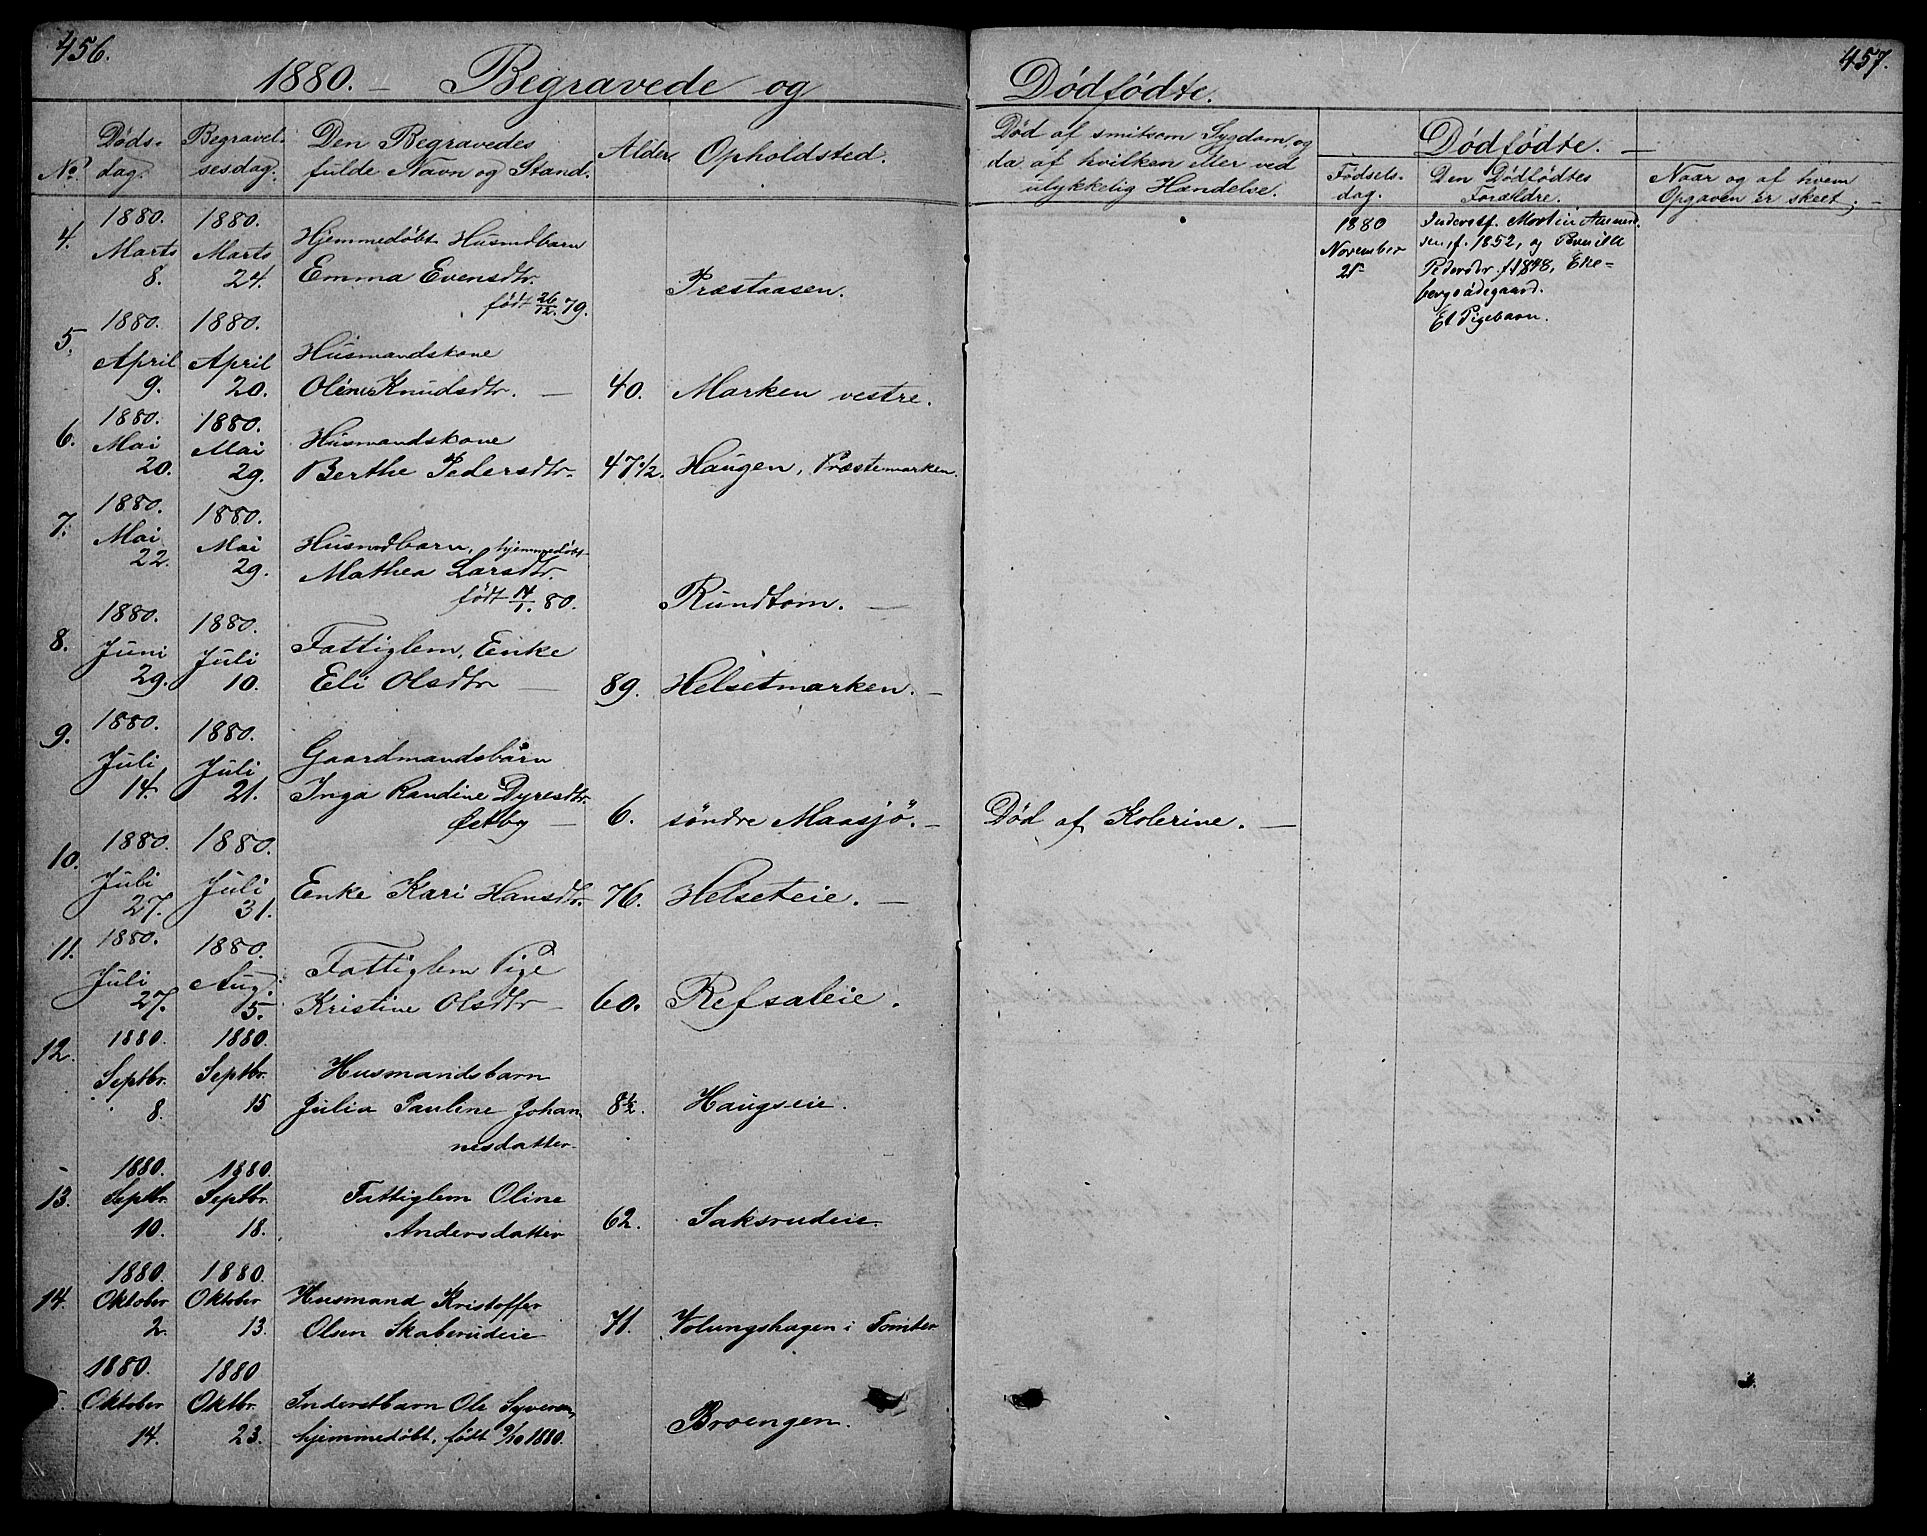 456.
1880. — Begravede og
No.
Døds-
dag.
Begravel-
sesdag.
Den Begravedes
fulde Navn og Stand.
Alder.
Opholdsted.
4.
1880. 1880.
Marts Marts Hjemmedøbt Husmdbarn
8. 24. Emma Evensdtr. Præstaasen.
født 26/12. 79.
5.
1880. 1880.
April April Husmandskone
9. 20. Oline Knudsdtr. — 40. Marken vestre.
6.
1880. 1880.
Mai Mai Husmandskone
20. 29. Berthe Pedersdtr. 47 1/2. Haugen, Præstemarken.
7.
1880. 1880.
Mai Mai Husmdbarn, hjemmedøbt
22. 29. Mathea Larsdtr.
født 14/1. 80. Rundtom. —
8.
1880. 1880.
Juni Juli Fattiglem, Enke
29. 10. Eli Olsdtr — 89. Helsetmarken. —
9.
1880. 1880.
Juli Juli Gaardmandsbarn
14. 21. Inga Randine Dyresdtr.
Østby — 6. søndre Maasjö. —
10.
1880. 1880.
Juli Juli
27. 31. Enke Kari Hansdtr. 76. Helseteie. —
11.
1880. 1880.
Juli Aug. Fattiglem Pige
27. 5. Kristine Olsdtr — 60. Refsaleie.
12.
1880. 1880.
Septbr. Septbr. Husmandsbarn
8. 15 Julia Pauline Johan 8 1/2. Haugseie.
nesdatter
13.
1880. 1880.
Septbr. Septbr. Fattiglem Oline
10. 18. Andersdatter 62. Saksrudeie
14.
1880. 1880.
Oktober Oktober Husmand Kristoffer
2. 13. Olsen Skaberudeie 71. Volungshagen i Tomter
1880. 1880
Oktober Oktbr. Inderstbarn Ole Syversen,
14. 23. hjemmedøbt, født 9/10 1880. Broengen.
457.
Dødfødte.
Død af smitsom Sygdom og
da af hvilken eller ved
ulykkelig Hændelse.
Dødfødte. —
Fødsels-
dag.
Den Dødfødtes
Forældre.
Naar og af hvem
Opgaven er skeet. —
1880
November
25
Inderstf. Martin
sen, f. 1852, og Pernille
Pedersdtr. f. 1848, Eke-
bergødegaard.
Et Pigebarn.
Død af Kolerine. —